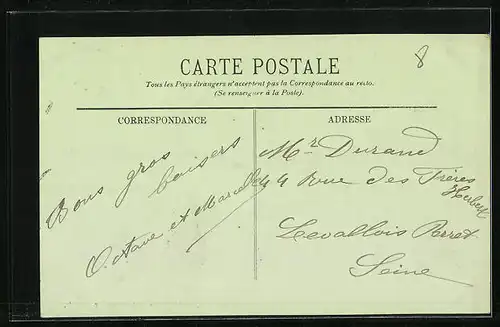 8
CARTE POSTALE
Tous les Pays étrangers n'acceptent pas la Correspondance au recto.
(Se renseigner à la Poste).
CORRESPONDANCE
Bons gros
baisers
Octave et Marcelle
ADRESSE
Mr Durand
44 Rue des Frères
Herbert
Levallois Perret
Seine